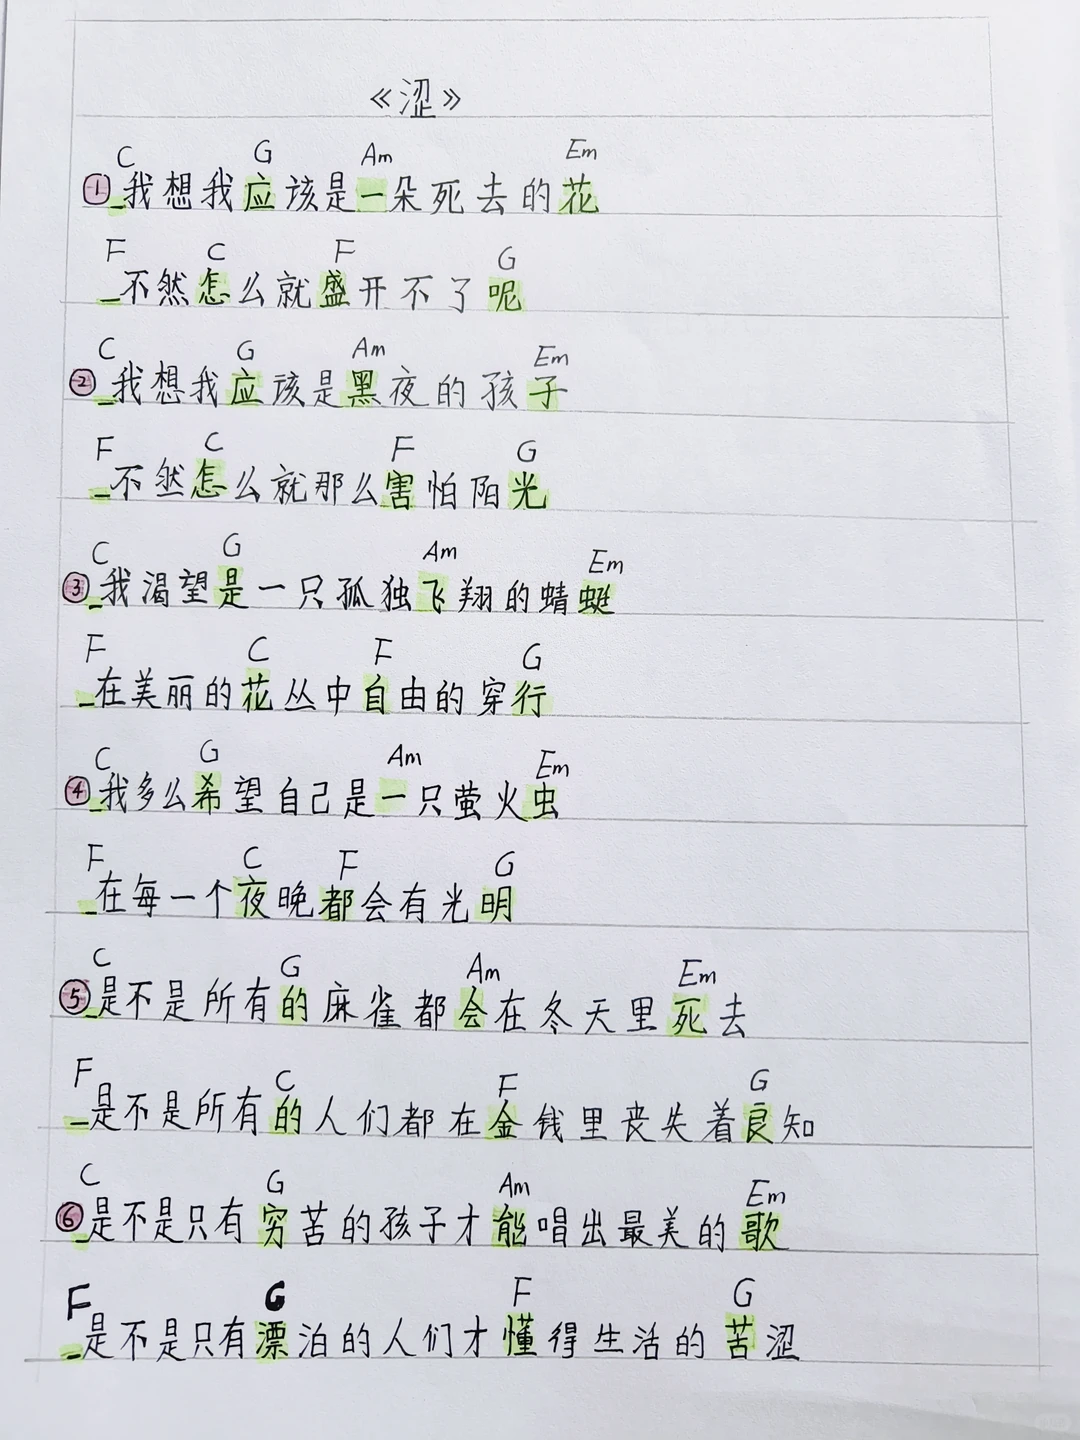 《涩》
C G Am Em
①_我想我应该是一朵死去的花
F C F G
_不然怎么就盛开不了呢
C G Am Em
②_我想我应该是黑夜的孩子
F C F G
_不然怎么就那么害怕阳光
C G Am Em
③_我渴望是一只孤独飞翔的蜻蜓
F C F G
_在美丽的花丛中自由的穿行
C G Am Em
④_我多么希望自己是一只萤火虫
F C F G
_在每一个夜晚都会有光明
C G Am Em
⑤_是不是所有的麻雀都会在冬天里死去
F C F G
_是不是所有的人们都在金钱里丧失着良知
C G Am Em
⑥_是不是只有穷苦的孩子才能唱出最美的歌
F G F G
_是不是只有漂泊的人们才懂得生活的苦涩